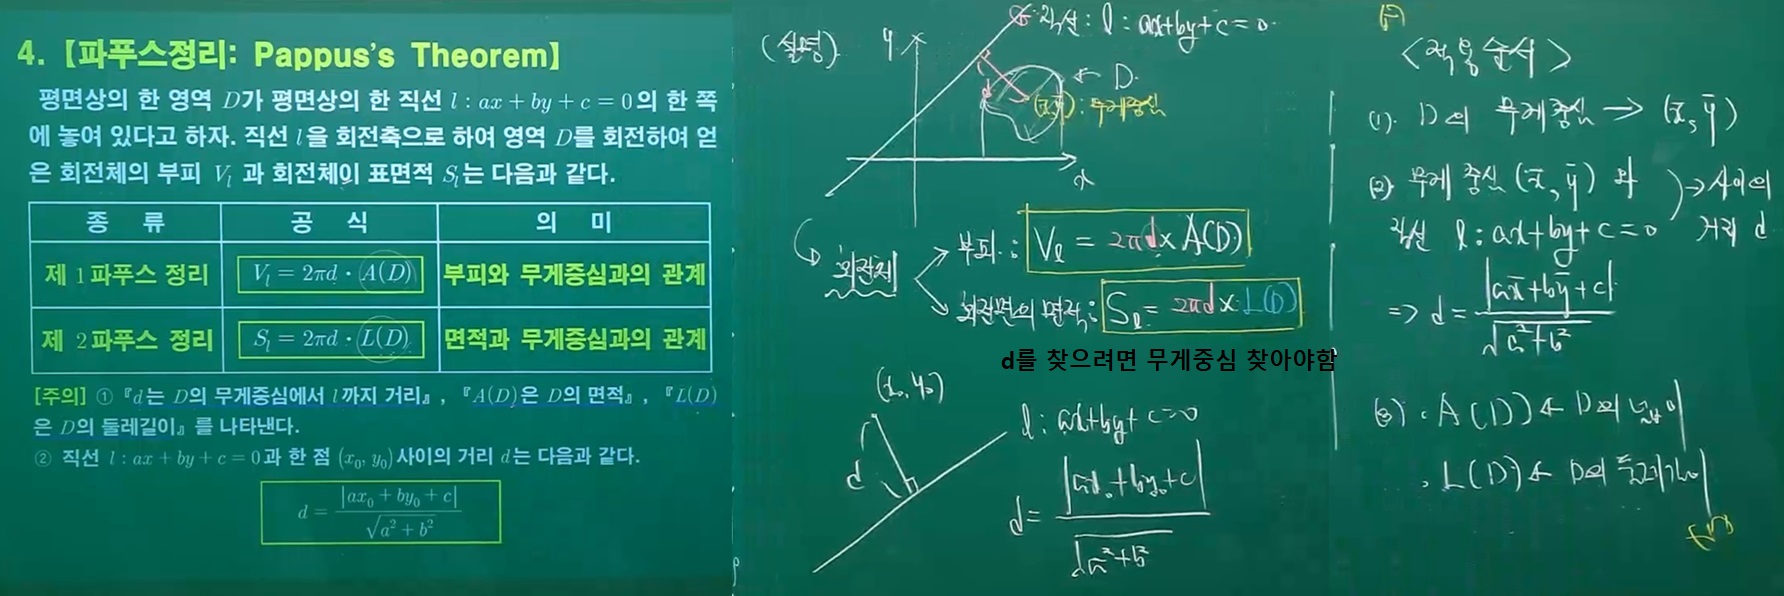 4. 【파푸스정리: Pappus's Theorem】
평면상의 한 영역 D가 평면상의 한 직선 l : ax + by + c = 0의 한 쪽
에 놓여 있다고 하자. 직선 l을 회전축으로 하여 영역 D를 회전하여 얻
은 회전체의 부피 Vₗ 과 회전체이 표면적 Sₗ는 다음과 같다.
종 류 공 식 의 미
제 1 파푸스 정리 Vₗ = 2πd · A(D) 부피와 무게중심과의 관계
제 2 파푸스 정리 Sₗ = 2πd · L(D) 면적과 무게중심과의 관계
[주의] ① 『d는 D의 무게중심에서 l까지 거리』, 『A(D)은 D의 면적』, 『L(D)
은 D의 둘레길이』를 나타낸다.
② 직선 l : ax + by + c = 0과 한 점 (x₀, y₀) 사이의 거리 d는 다음과 같다.
d = |ax₀ + by₀ + c| / √(a² + b²)
(설명)
y
직선 : l : ax+by+c=0
← D
d
(x̄, ȳ) : 무게중심
x
회전체
부피 : Vₗ = 2πd × A(D)
회전면의 면적 : Sₗ = 2πd × L(D)
d를 찾으려면 무게중심 찾아야함
(x₀, y₀)
l : ax+by+c=0
d
d = |ax₀+by₀+c| / √(a²+b²)
<적용순서>
(1). D의 무게중심 → (x̄, ȳ)
(2) 무게중심 (x̄, ȳ) 와
직선 l : ax+by+c=0
→ 사이의
거리 d
=> d = |ax̄+bȳ+c| / √(a²+b²)
(3) · A(D) ← D의 넓이
· L(D) ← D의 둘레길이